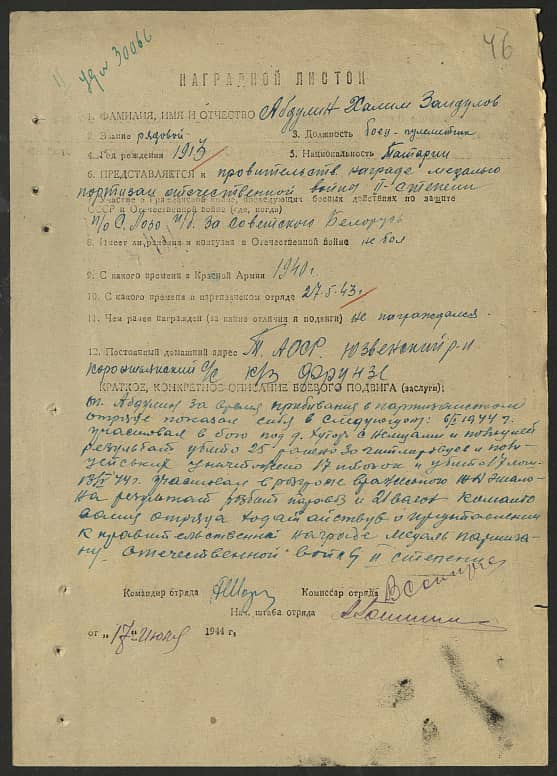 30066
46
НАГРАДНОЙ ЛИСТОК
1. ФАМИЛИЯ, ИМЯ И ОТЧЕСТВО Абдулин Халим Заидулов
2. Звание рядовой 3. Должность боец-пулеметчик
4. Год рождения 1913 5. Национальность Татарин
6. ПРЕДСТАВЛЯЕТСЯ к правительств награде медалью
партизан отечественной войны II-степени
Участие в гражданской войне, последующих боевых действиях по защите
СССР и Отечественной войне (где, когда)
П/О С. Лазо. за Советскую Белорусь
8. Имеет ли ранения и контузия в Отечественной войне не был
9. С какого времени в Красной Армии 1940 г.
10. С какого времени в партизанском отряде 27.5.43 г.
11. Чем ранее награжден (за какие отличия и подвиги) не награждался.
12. Постоянный домашний адрес Т. АССР. Юзвенский р-н
с/с к/з Фрунзе
КРАТКОЕ, КОНКРЕТНОЕ ОПИСАНИЕ БОЕВОГО ПОДВИГА (заслуги):
т. Абдулин за время прибывания в партизанском
отряде показал себя в следующем: 1944 г.
участвовал в бою под д. Хутор с немцами и полицией
результат убито 25 ранено 30 гитлеровцев и
уничтожено 17 повозок и убито 17 лош.
участвовал в разгроме вражеского ЖД эшалона
результат розбит поровоз и 21 вагон
отряда ходатайствует о предтовлении
к правительственной награде медаль партизану
отечественной войны II степени
Командир отряда Комиссар отряда
Нач. штаба отряда
от „17" июля 1944 г.